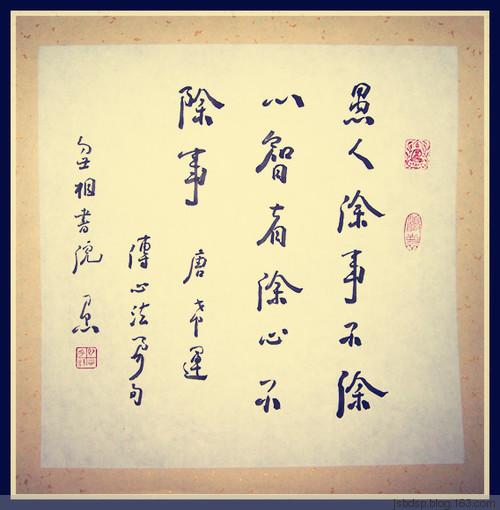 愚人除事不除
心智者除心不
除事 唐希運
傳心法要句
相書院
jsbdsp.blog.163.com